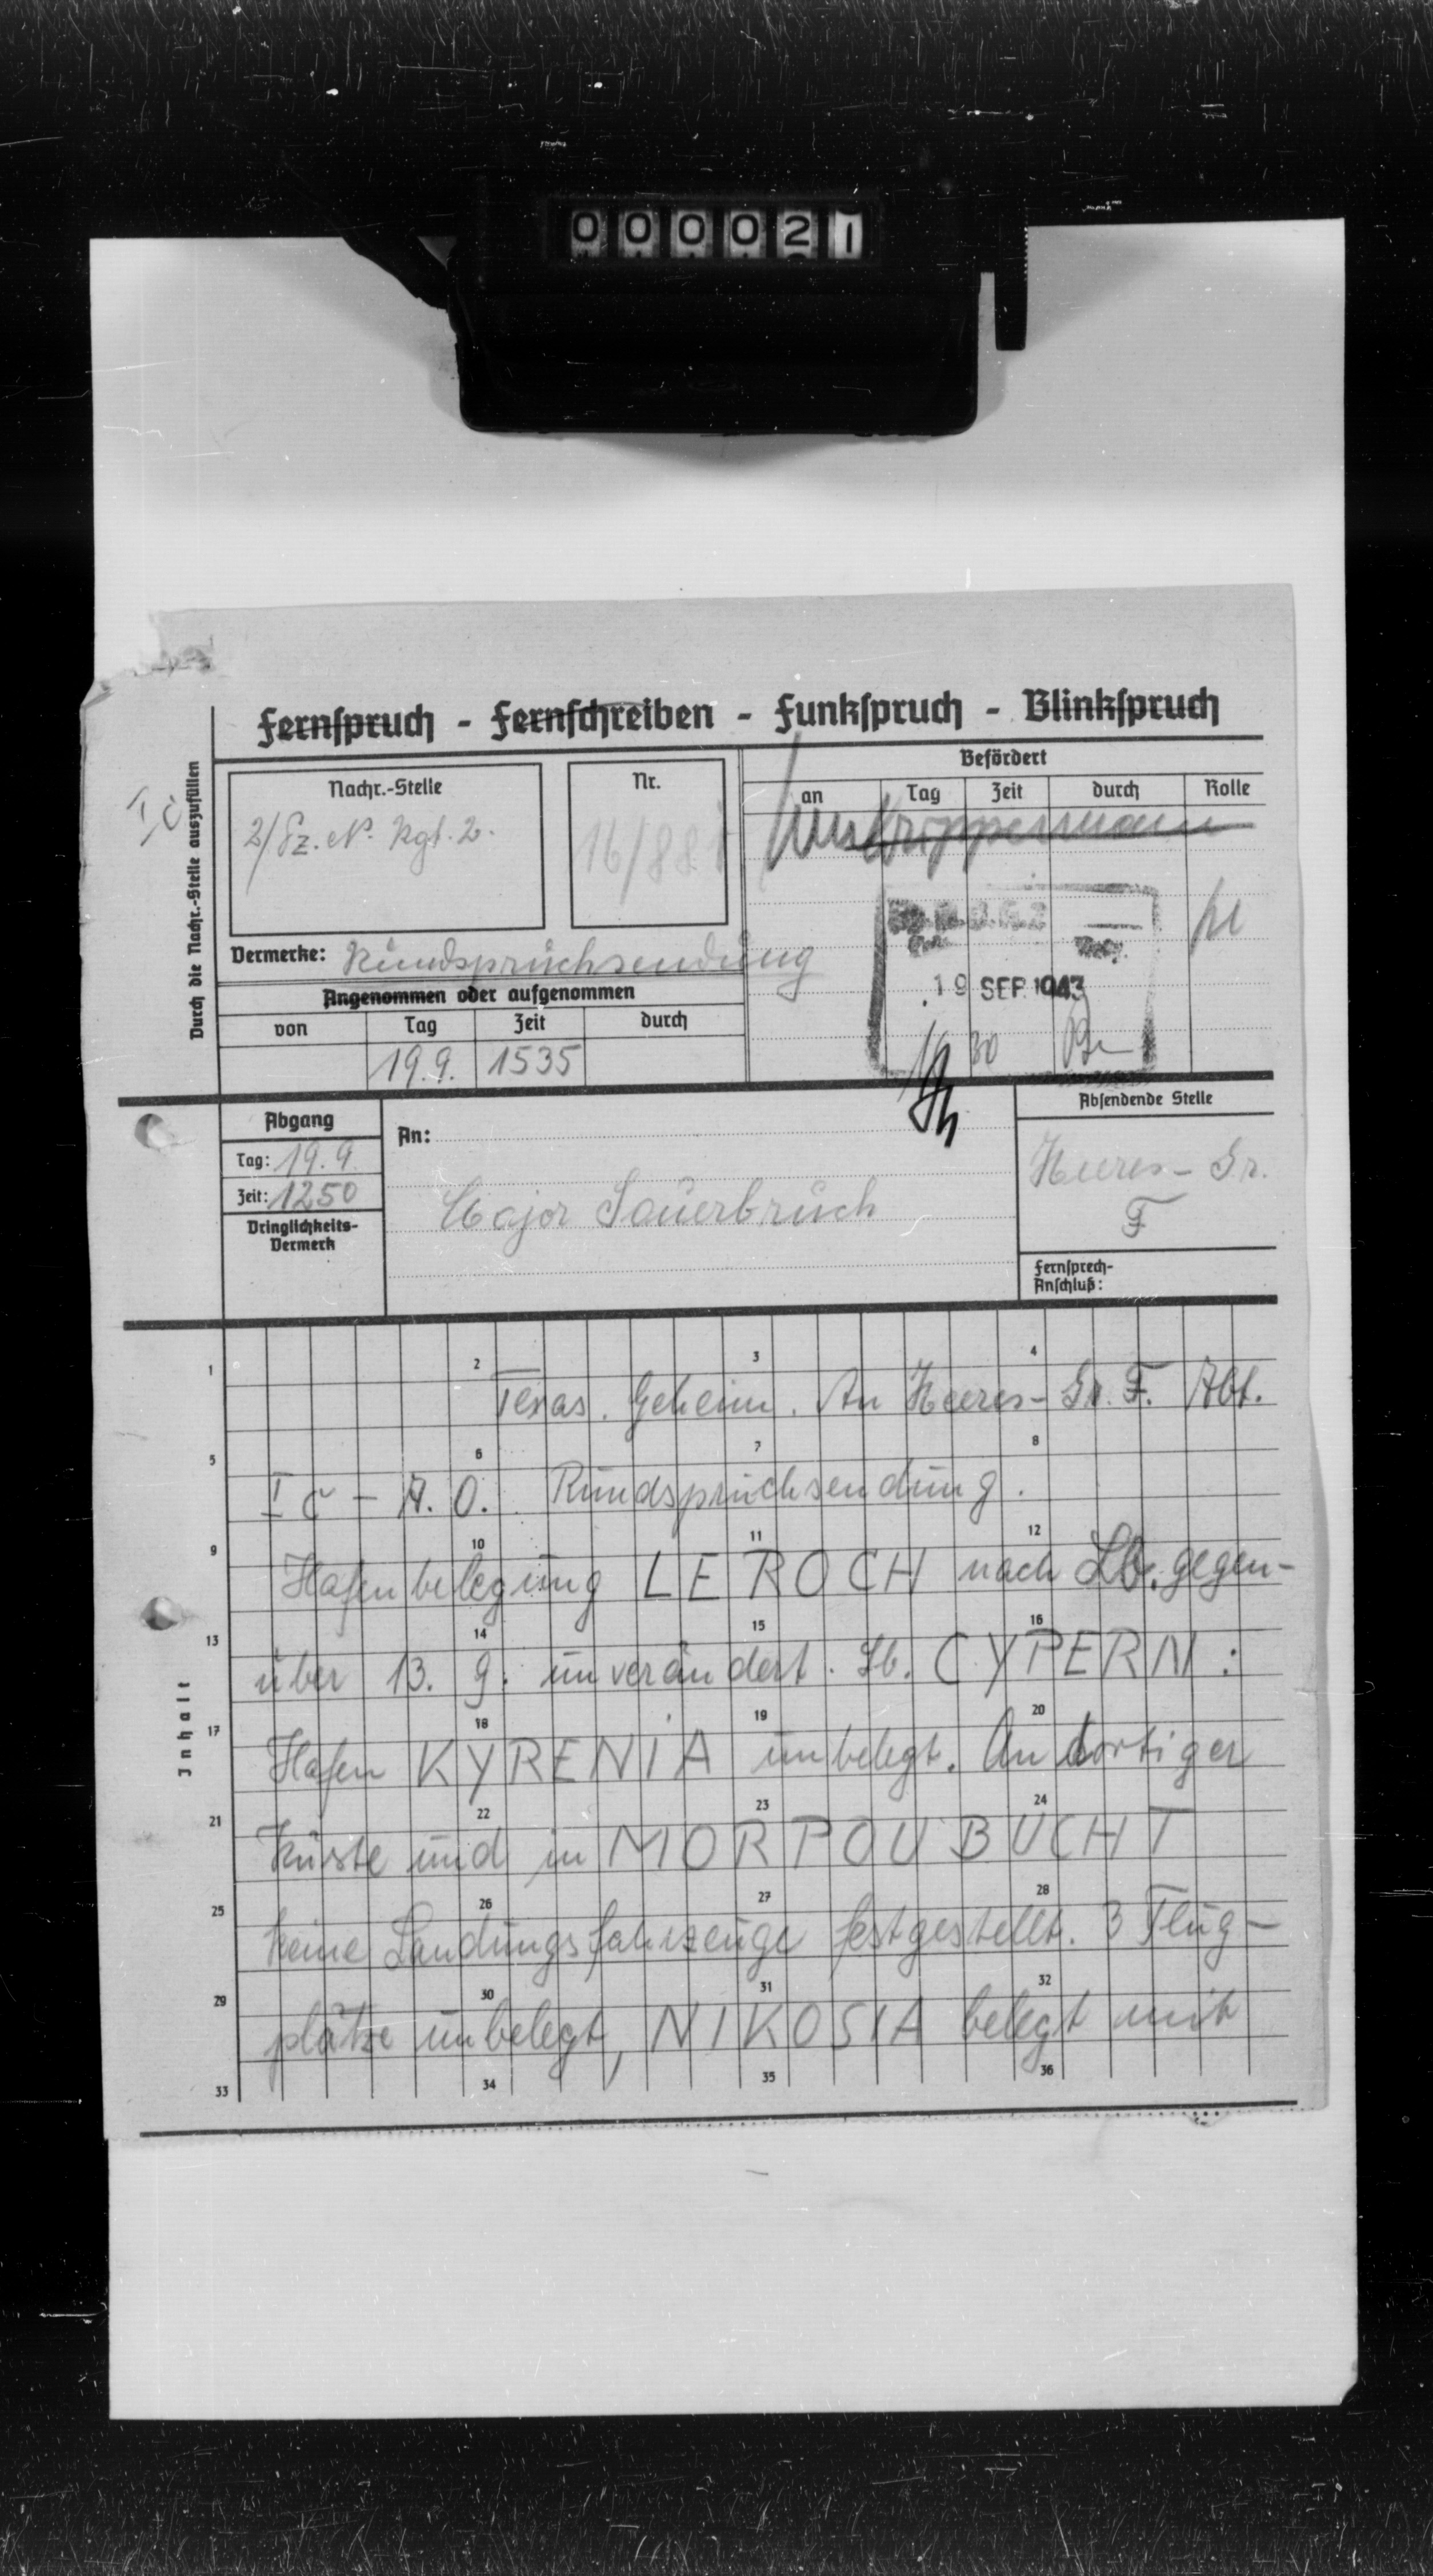 000021
Fernspruch - Fernschreiben - Funkspruch - Blinkspruch
Durch die Nachr.-Stelle auszufüllen
Ic
Nachr.-Stelle
2/Pz. N. Rgt. 2.
Nr.
16/881
Befördert
an Tag Zeit durch Rolle
Vermerke: Rundspruchsendung
19 SEP. 1943
30
Angenommen oder aufgenommen
von Tag Zeit durch
19.9. 1535
Abgang
Tag: 19.9.
Zeit: 1250
Dringlichkeits-
Vermerk
An:
Major Sauerbruch
Absendende Stelle
Heeres-Gr.
F
Fernsprech-
Anschluß:
Inhalt
1 2 3 4
Texas. Geheim. An Heeres-Gr. F. Abt.
5 6 7 8
Ic - A.O. Rundspruchsendung.
9 10 11 12
Hafenbelegung LEROCH nach Lb. gegen-
13 14 15 16
über 13. 9. unverändert. Lb. CYPERN:
17 18 19 20
Hafen KYRENIA unbelegt. An dortiger
21 22 23 24
Küste und in MORPOU BUCHT
25 26 27 28
keine Landungsfahrzeuge festgestellt. 3 Flug-
29 30 31 32
plätze unbelegt, NIKOSIA belegt mit
33 34 35 36